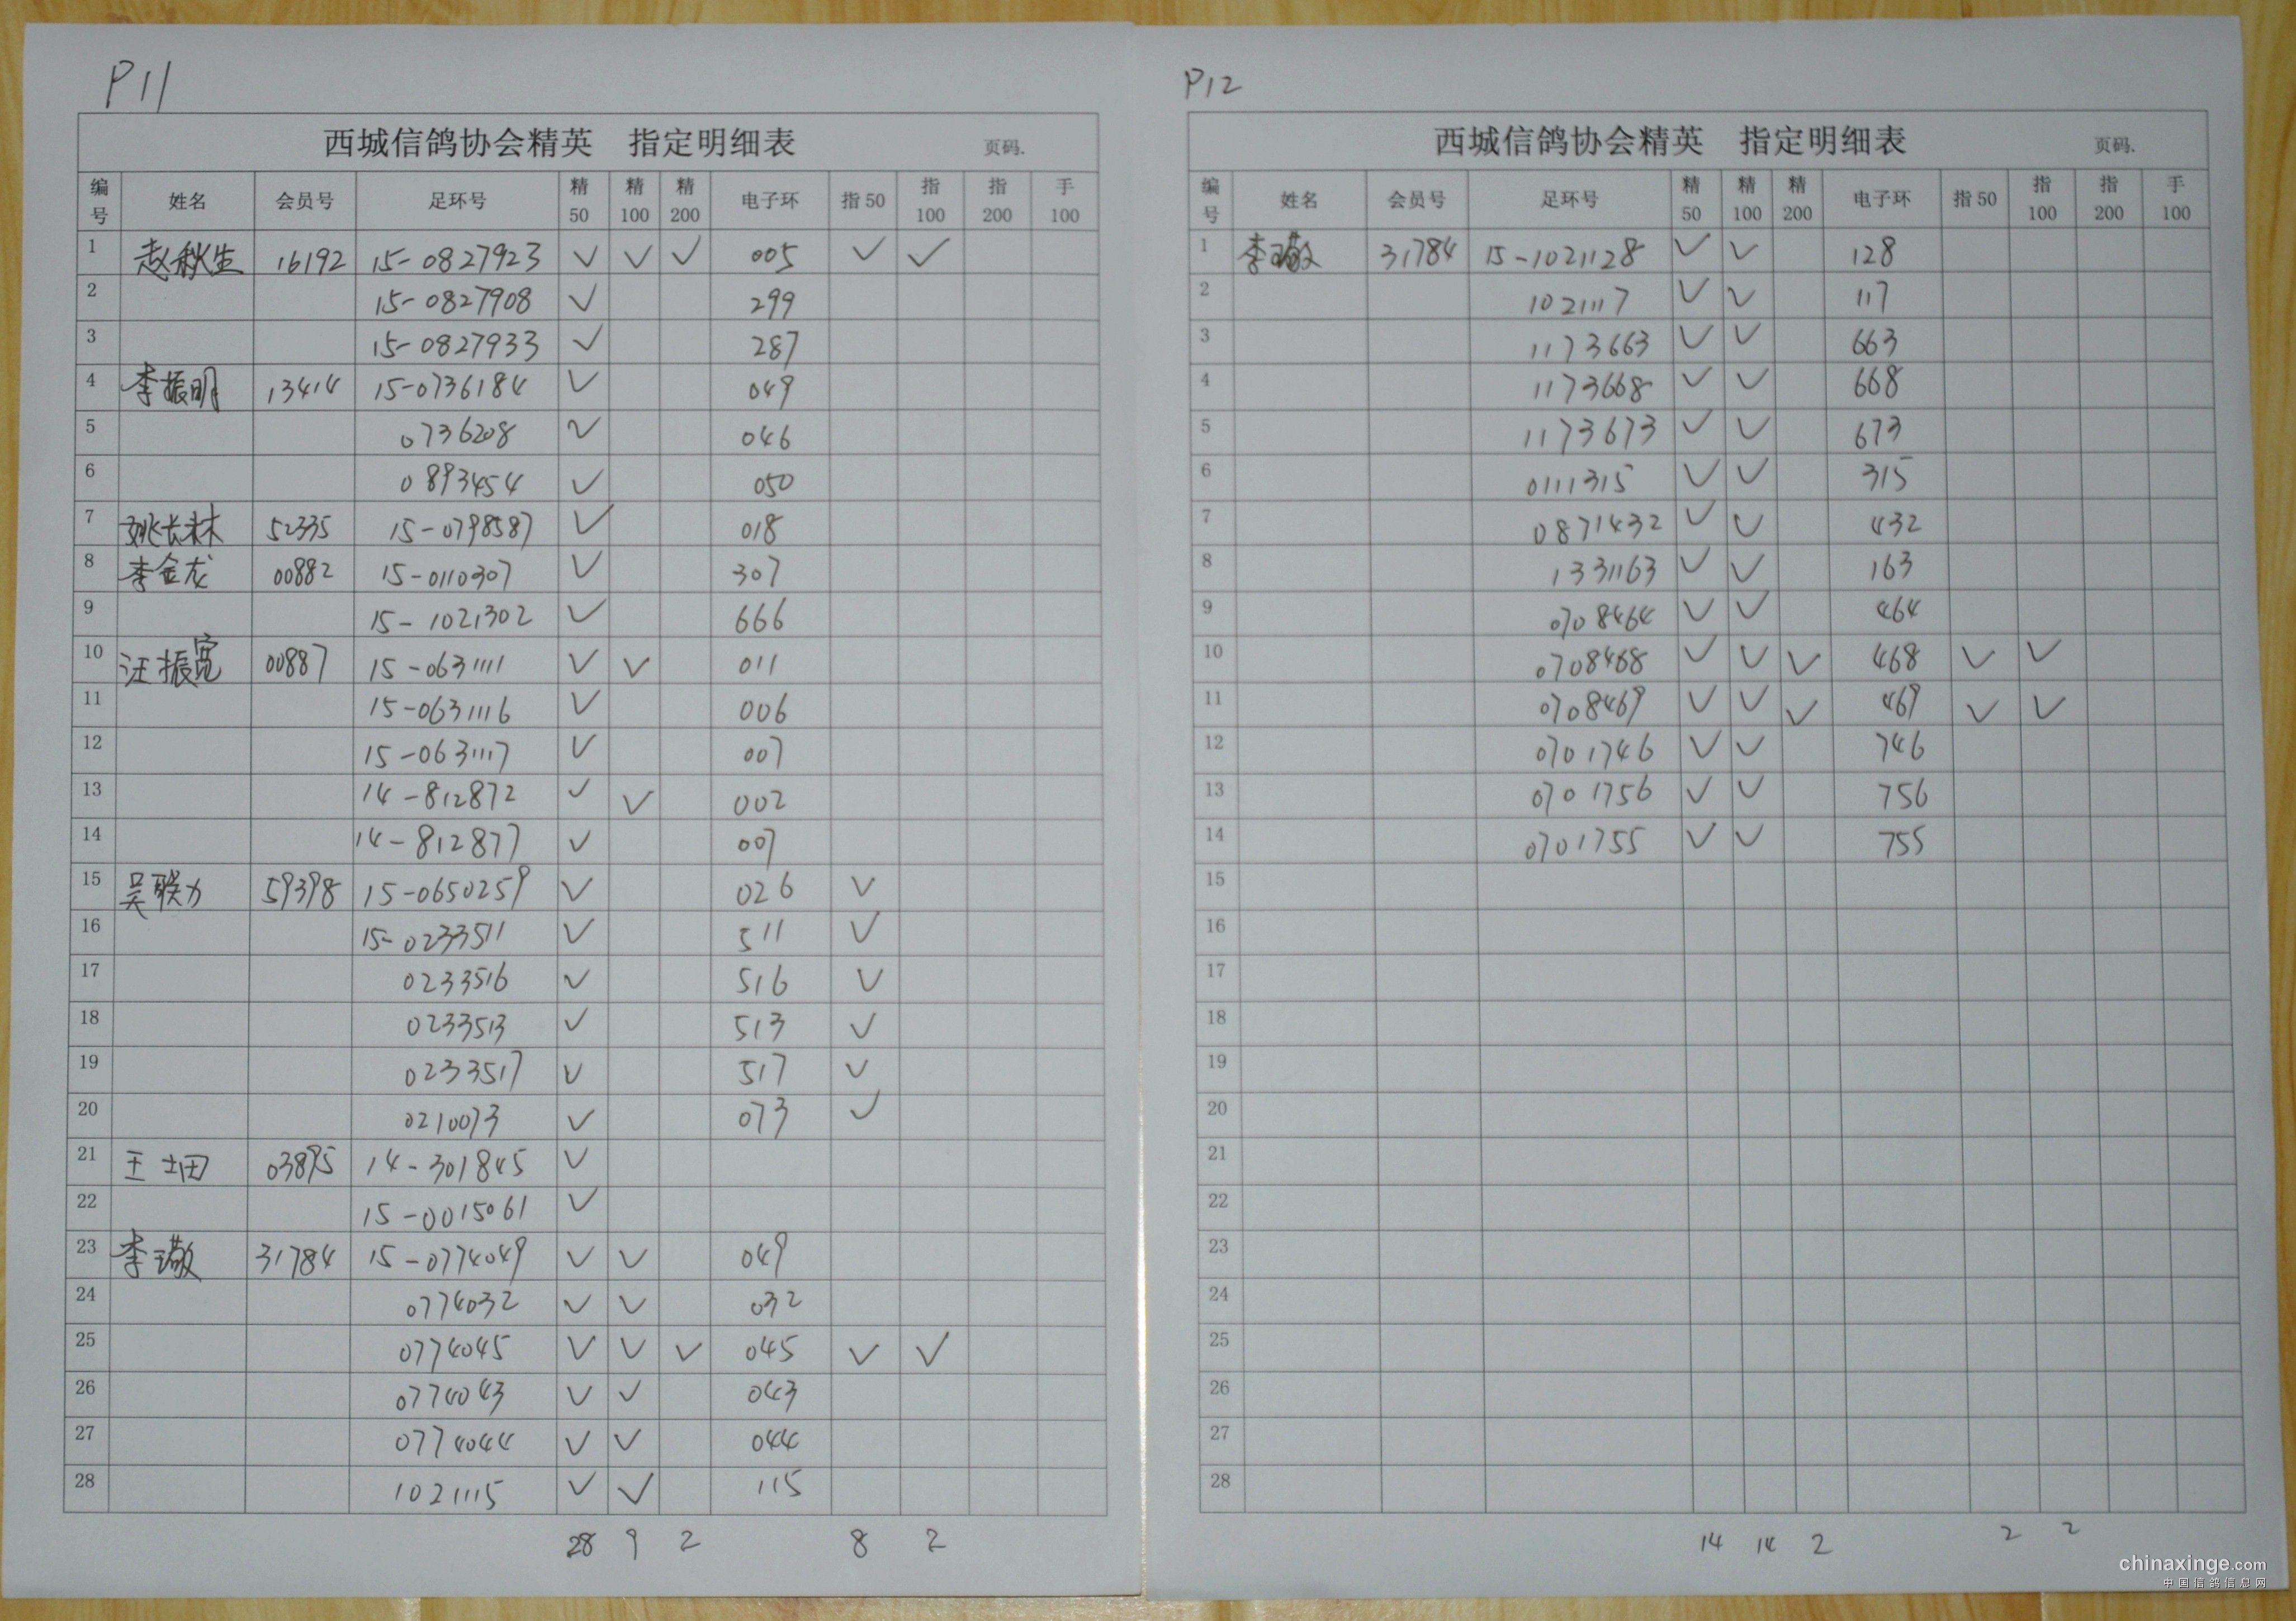 P11
西城信鸽协会精英 指定明细表 页码.
编号 姓名 会员号 足环号 精50 精100 精200 电子环 指50 指100 指200 手100
1 赵秋生 16192 15-0827923 ✓ ✓ ✓ 005 ✓ ✓
2 15-0827908 ✓ 299
3 15-0827933 ✓ 287
4 李振明 13414 15-0736184 ✓ 049
5 0736208 ✓ 046
6 0893454 ✓ 050
7 姚长林 52335 15-0798587 ✓ 018
8 李金龙 00882 15-0110307 ✓ 307
9 15-1021302 ✓ 666
10 汪振宽 00887 15-0631111 ✓ ✓ 011
11 15-0631116 ✓ 006
12 15-0631117 ✓ 007
13 14-812872 ✓ ✓ 002
14 14-812877 ✓ 007
15 吴联力 59398 15-0650259 ✓ 026 ✓
16 15-0233511 ✓ 511 ✓
17 0233516 ✓ 516 ✓
18 0233513 ✓ 513 ✓
19 0233517 ✓ 517 ✓
20 0210073 ✓ 073 ✓
21 王士田 03895 14-301845 ✓
22 15-0015061 ✓
23 李璥 31784 15-0774049 ✓ ✓ 049
24 0774032 ✓ ✓ 032
25 0774045 ✓ ✓ ✓ 045 ✓ ✓
26 0774043 ✓ ✓ 043
27 0774044 ✓ ✓ 044
28 1021115 ✓ ✓ 115
28 9 2 8 2
P12
西城信鸽协会精英 指定明细表 页码.
编号 姓名 会员号 足环号 精50 精100 精200 电子环 指50 指100 指200 手100
1 李璥 31784 15-1021128 ✓ ✓ 128
2 1021117 ✓ ✓ 117
3 1173663 ✓ ✓ 663
4 1173668 ✓ ✓ 668
5 1173673 ✓ ✓ 673
6 0111315 ✓ ✓ 315
7 0871432 ✓ ✓ 432
8 1331163 ✓ ✓ 163
9 0708464 ✓ ✓ 464
10 0708468 ✓ ✓ ✓ 468 ✓ ✓
11 0708469 ✓ ✓ ✓ 469 ✓ ✓
12 0701746 ✓ ✓ 746
13 0701756 ✓ ✓ 756
14 0701755 ✓ ✓ 755
15
16
17
18
19
20
21
22
23
24
25
26
27
28
14 14 2 2 2
chinaxinge.com
中国信鸽信息网